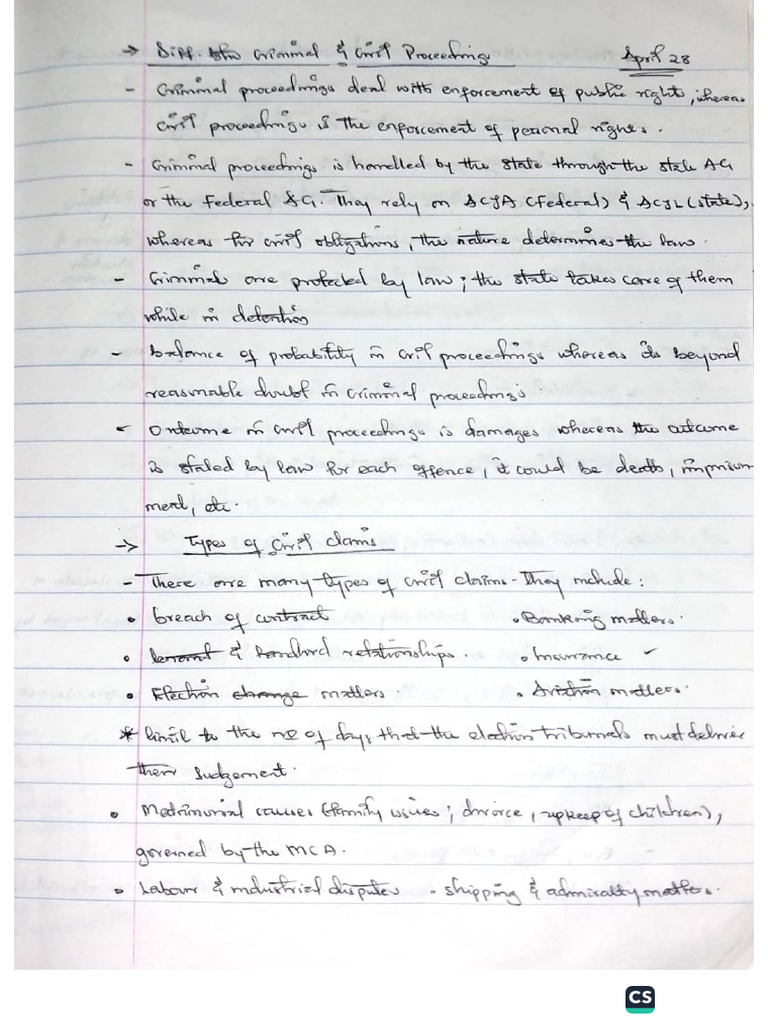 → Diff. btw Criminal & Civil Proceedings April 28
- Criminal proceedings deal with enforcement of public right, whereas
civil proceedings is the enforcement of personal rights.
- Criminal proceedings is handled by the state through the state AG
or the Federal AG. They rely on ACJA (Federal) & ACJL (state),
whereas for civil obligations, the nature determines the law.
- Criminals are protected by law; the state takes care of them
while in detention
- balance of probability in civil proceedings whereas its beyond
reasonable doubt in criminal proceedings.
- Outcome in civil proceedings is damages whereas the outcome
is stated by law for each offence, it could be death, imprison-
ment, etc.
→ Types of Civil claims
- There are many types of civil claims - They include:
• breach of contract • Banking matters.
• tenant & landlord relationships. • Insurance ✓
• Election matters. • Aviation matters.
* limit to the no of days that the election tribunals must deliver
their judgement.
• Matrimonial causes (family issues; divorce, upkeep of children),
governed by the MCA.
• Labour & industrial disputes - shipping & admiralty matters.
CS